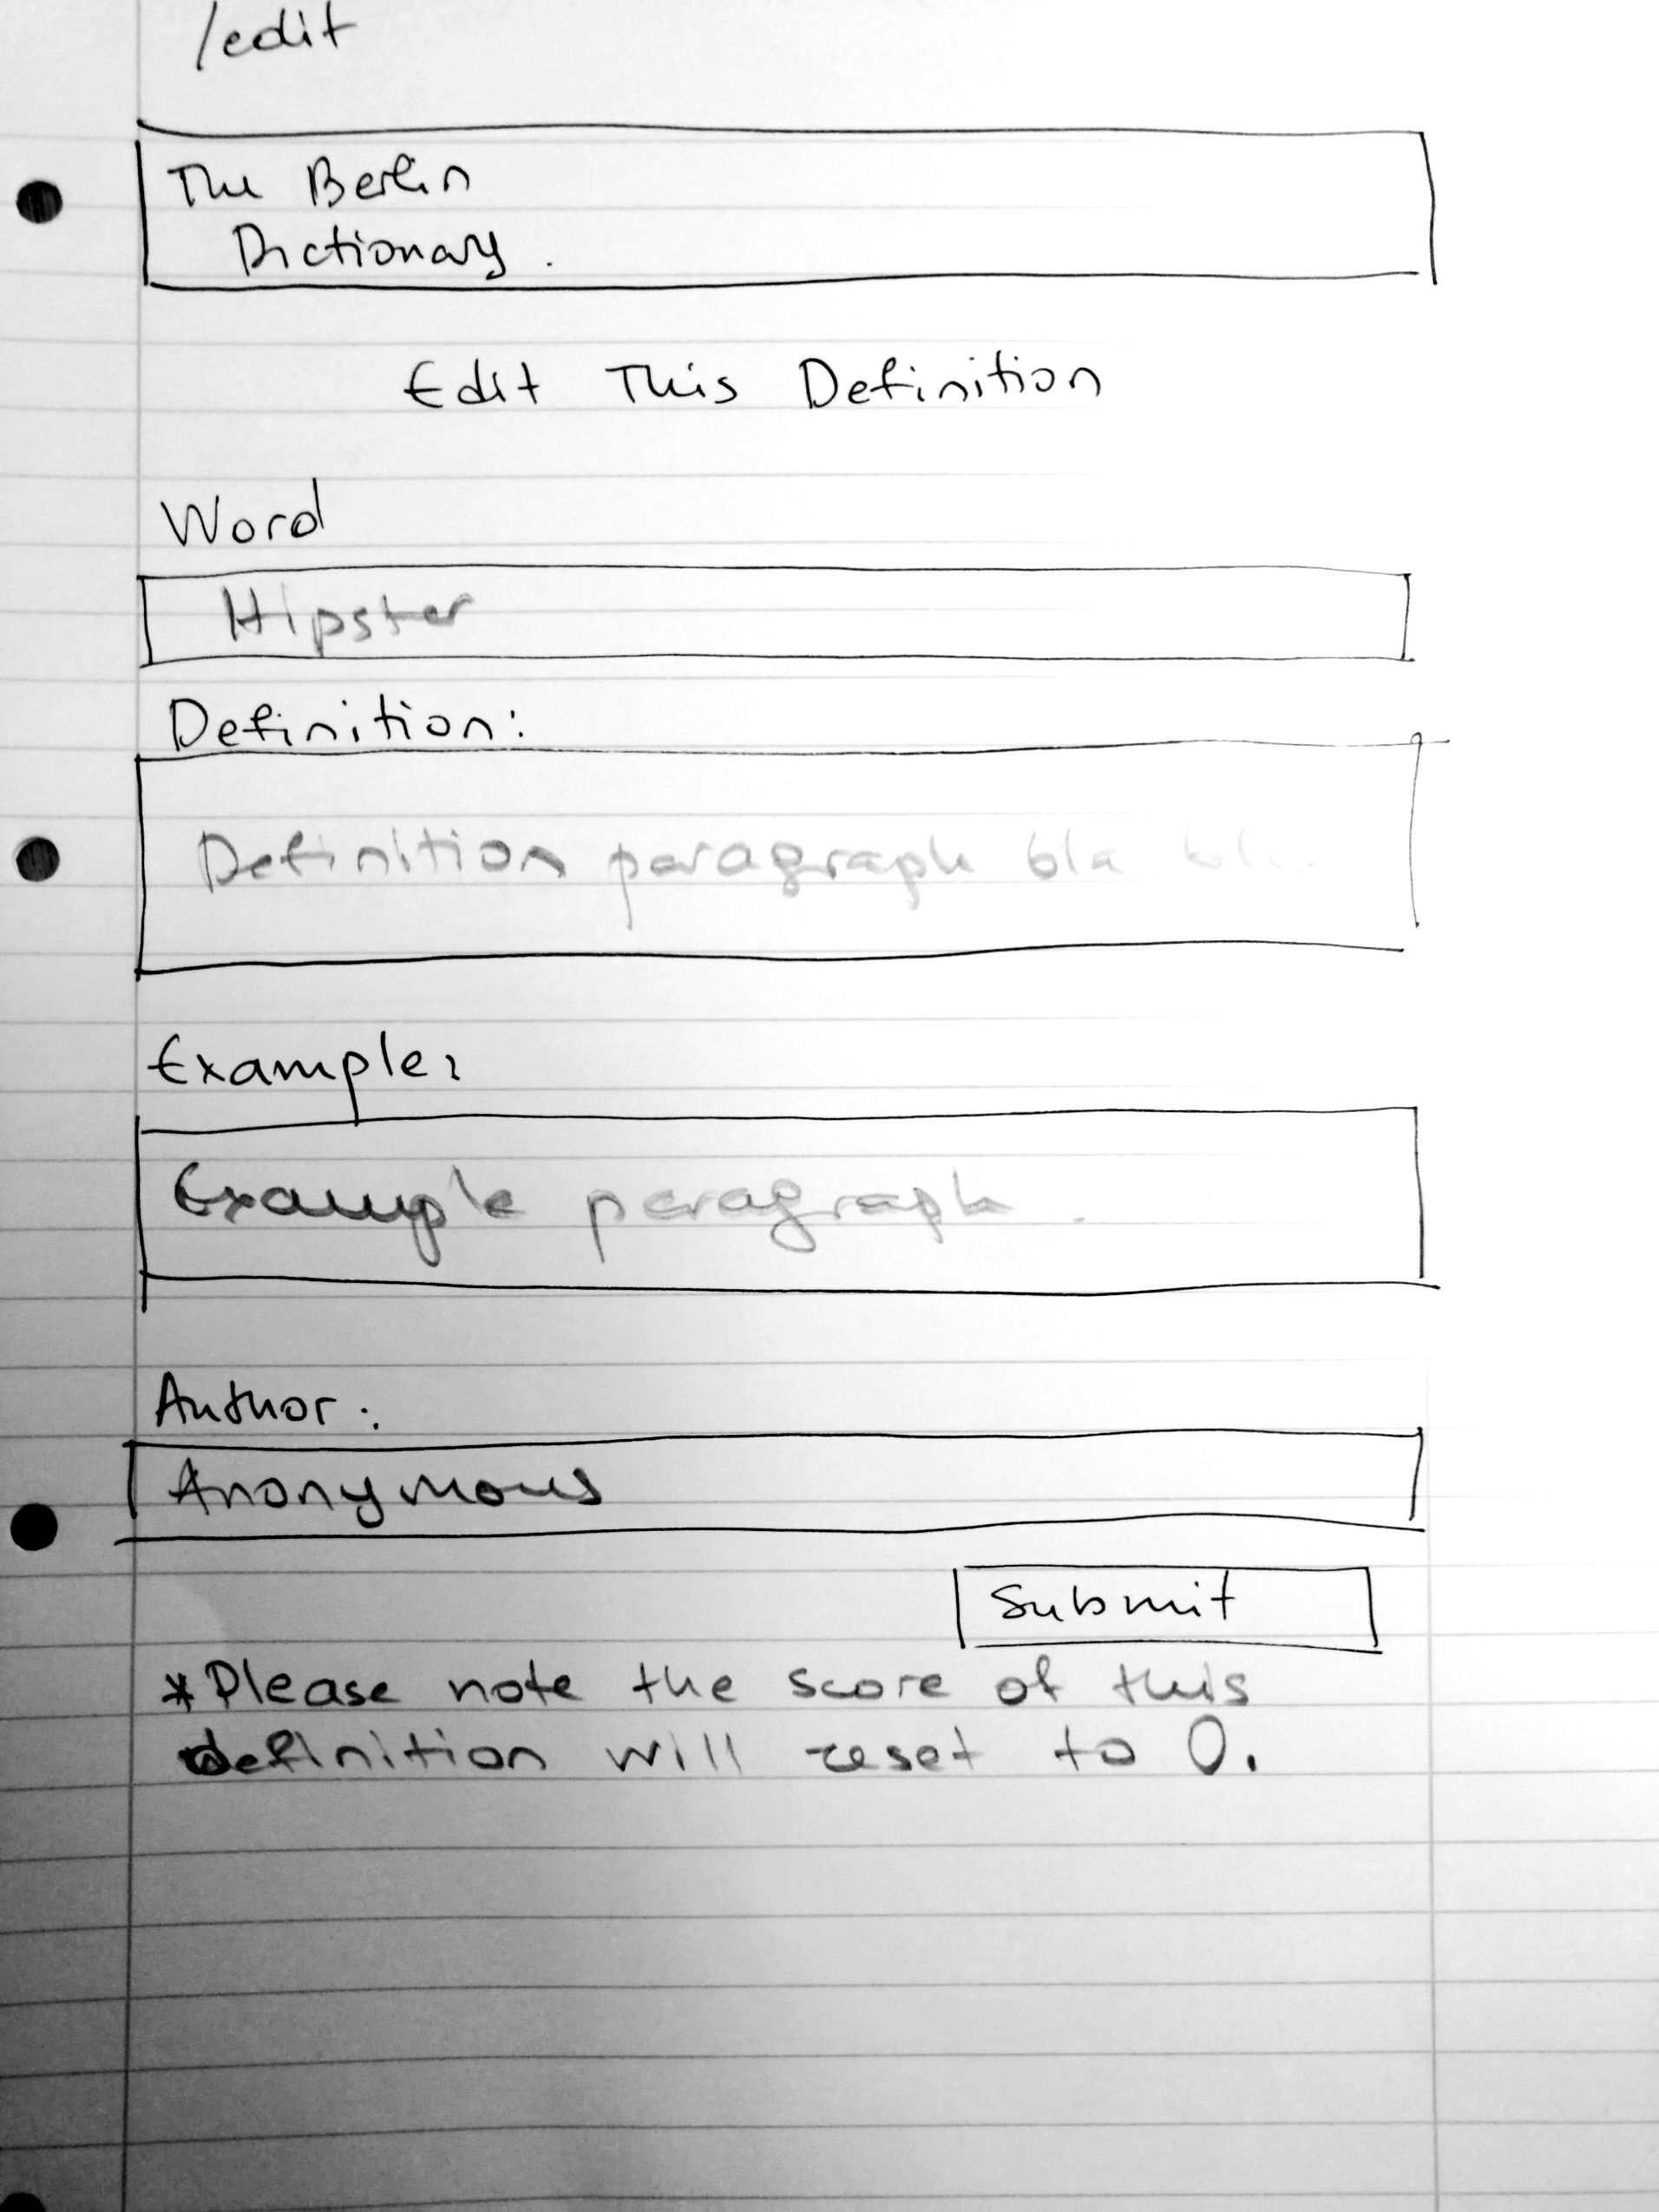 /edit
The Berlin
Dictionary.
Edit This Definition
Word
Hipster
Definition:
Definition paragraph bla
Example:
Example paragraph.
Author:
Anonymous
Submit
*Please note the score of this
definition will reset to 0.